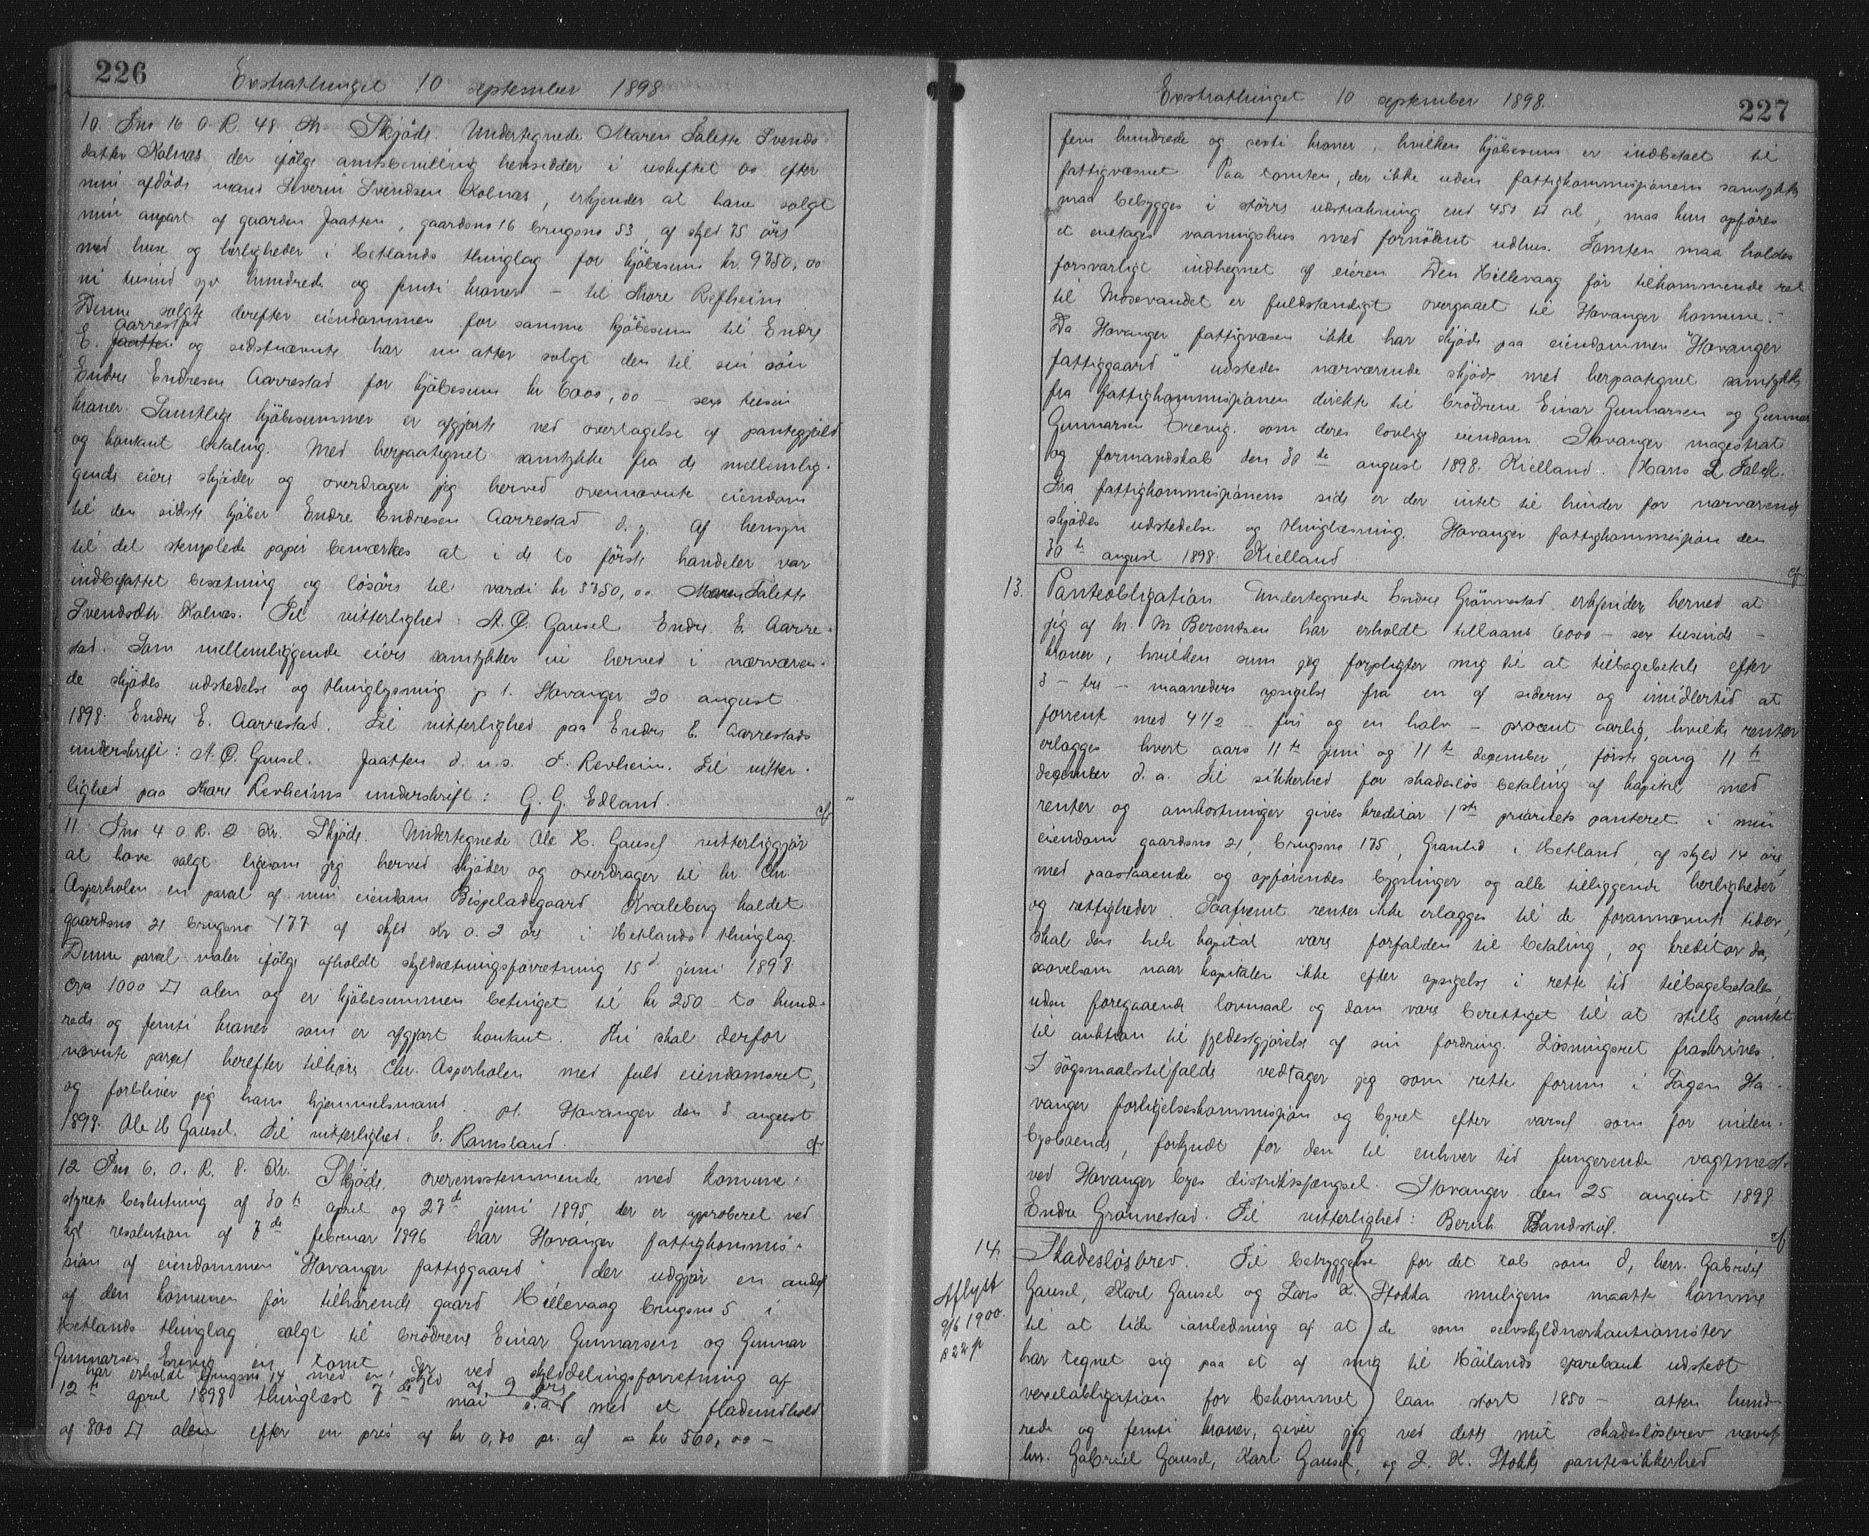 226
Exstrathinget 10 september 1898
10. Jno 16 O. R. 48 Kr Skjöde. Undertegnede Maren Salette Svends-
datter Kolnæs, der ifölge amtsbevilling hensidder i uskiftet bo efter
min afdöde mand Severin Svendsen Kolnæs, erkjender at have solgt
min anpart af gaarden Jaatten, gaardsno 16 brugsno 53, af skyld 75 öre
med huse og herligheder i Hetlands thinglag for kjöbesum kr. 9750,00
ni tusind syv hundrede og femti kroner – til Tore Refheim
Denne solgte derefter eiendommen for samme kjöbesum til Endre
E. Aarrestad og sidstnævnte har nu atter solgt den til sin sön
Endre Endresen Aarrestad for kjöbesum kr 6000,00 – sex tusen
kroner. Samtlige kjöbesummer er afgjorte ved overtagelse af pantegjæld
og kontant betaling. Med herpaategnet samtykke fra de mellemlig-
gende eiere skjöder og overdrager jeg herved ovennævnte eiendom
til den sidste kjöber Endre Endresen Aarrestad d. y. Af hensyn
til det stemplede papir bemærkes at i de to förste handeler var
indbefattet besætning og lösöre til værdi kr 3750,00 Maren Salette
Svendsdtr Kolnæs. Til vitterlighed: A. Ø. Gausel Endre E. Aarre-
stad. Som mellemliggende eiere samtykker vi herved i nærværen-
de skjödes udstedelse og thinglysning p t. Stavanger 20 august
1898. Endre E. Aarrestad. Til vitterlighed paa Endre E. Aarrestads
underskrift: A. Ø. Gausel. Jaatten d. u. s. T. Revheim. Til vitter-
lighed paa Tore Revheims underskrift: G. G. Edland.
11. Jno 4 O. R. 2 Kr. Skjöde. Undertegnede Ole H. Gausel vitterliggjör
at have solgt ligesom jeg herved skjöder og overdrager til hr. Chr.
Asperholen en parcel af min eiendom Bispeladegaard Kvaleberg kaldet
gaardsno 21 brugsno 177 af skyld Kr 0.2 öre i Hetlands thinglag
Denne parcel maler ifölge afholdt skyldsætningsforretning 15d juni 1898
cva 1000 □ alen og er kjöbesummen betinget til kr 250 – to hund-
rede og femti kroner som er afgjort kontant. Thi skal derfor
nævnte parcel herefter tilhöre Chr. Asperholen med fuld eiendomsret,
og forbliver jeg hans hjemmelsmand. pt. Stavanger den 8 august
1898. Ole H Gausel. Til vitterlighed: C. Ramsland.
12 Jno 6. O. R. 8. Kr. Skjöde, overensstemmende med komune-
styrets beslutning af 30te april og 27de juni 1895, der er approberet ved
kgl resolution af 7de februar 1896 har Stavanger fattigkommis-
sion af eiendommen "Stavanger fattiggaard" der udgjör en andel
af den komunen för tilhörende gaard Hillevaag brugsno 5 i
Hetlands thinglag solgt til brödrene Einar Gunnarsen og Gunnar
Gunnarsen Erevig en tomt, der ved skylddelingsforretning af
har erholdt brugsno 14 med en skyld af 9 öre
12te april 1898 thinglæst 7de mai s. a. med et fladeindhold
af 800 □ alen efter en pris af kr 0,70 pr. al = kr 560,00 –
Exstrathinget 10 september 1898.
227
fem hundrede og sexti kroner, hvilken kjöbesum er indbetalt til
fattigvæsnet Paa tomten, der ikke uden fattigkommissionens samtykke
maa bebygges i större udstrækning end 450 □ al, maa kun opföres
et enetages vaaningshus med fornödent udhus. Tomten maa holdes
forsvarligt indhegnet af eieren Den Hillevaag för tilkommende ret
til Mosevandet er fuldstændigt overgaaet til Stavanger komune.
Da Stavanger fattigvæsen ikke har skjöde paa eiendommen "Stavanger
fattiggaard" udstedes nærværende skjöde med herpaategnet samtykke
fra fattigkommissionen direkte til brödrene Einar Gunnarsen og Gunnar
Gunnarsen Erevig som deres lovlige eiendom. Stavanger magistrat
og formandskab den 30te august 1898. Kielland. Hans L Falck.
Fra fattigkommissionens side er der intet til hinder for nærværende
skjödes udstedelse og thinglæsning. Stavanger fattigkommission den
30te august 1898 Kielland
13. Panteobligation Undertegnede Endre Grönnestad erkjender herved at
jeg af M. M Berentzen har erholdt tillaans 6000 – sex tusinde –
kroner, hvilken sum jeg forpligter mig til at tilbagebetale efter
3 – tre – maaneders opsigelse fra en af siderne og imidlertid at
forrente med 4 1/2 – fire og en halv – procent aarlig, hvilke renter
erlægges hvert aars 11te juni og 11te december, förste gang 11te
december d. a. Til sikkerhed for skadeslös betaling af kapital med
renter og omkostninger gives kreditor 1ste prioritets panteret i min
eiendom gaardsno 21, brugsno 175, Granlid i Hetland, af skyld 14 öre,
med paastaaende og opförendes bygninger og alle tilliggende herligheder
og rettigheder. Saafremt renter ikke erlægges til de forannævnte tider,
skal den hele kapital være forfalden til betaling, og kreditor da,
saavelsom naar kapitalen ikke efter opsigelse i rette tid tilbagebetales,
uden foregaaende lovmaal og dom være berettiget til at stille pantet
til auktion til fyldestgjörelse af sin fordring. Lösningsret fraskrives.
I sögsmaalstilfælde vedtager jeg som rette forum i sagen Sta-
vanger forligelseskommission og byret efter varsel som for inden-
bysboende, forkyndt for den til enhver tid fungerende vagtmester
ved Stavanger byes distriktsfængsel. Stavanger den 25 august 1898
Endre Grönnestad. Til vitterlighed: Bernh Sandskjöl.
14. Skadeslösbrev. Til betryggelse for det tab som d'hrr. Gabriel
Gausel, Karl Gausel og Lars K. Stokka muligens maatte komme
til at lide i anledning af at de som selvskyldnerkautionister
har tegnet sig paa et af mig til Höilands sparebank udstedt
vexelobligation for bekommet laan stort 1850 – atten hund
rede og femti kroner, giver jeg ved dette mit skadeslösbrev nævnte
hrr. Gabriel Gausel, Karl Gausel, og L. K. Stokka pantesikkerhed
Aflyst
9/6 1900